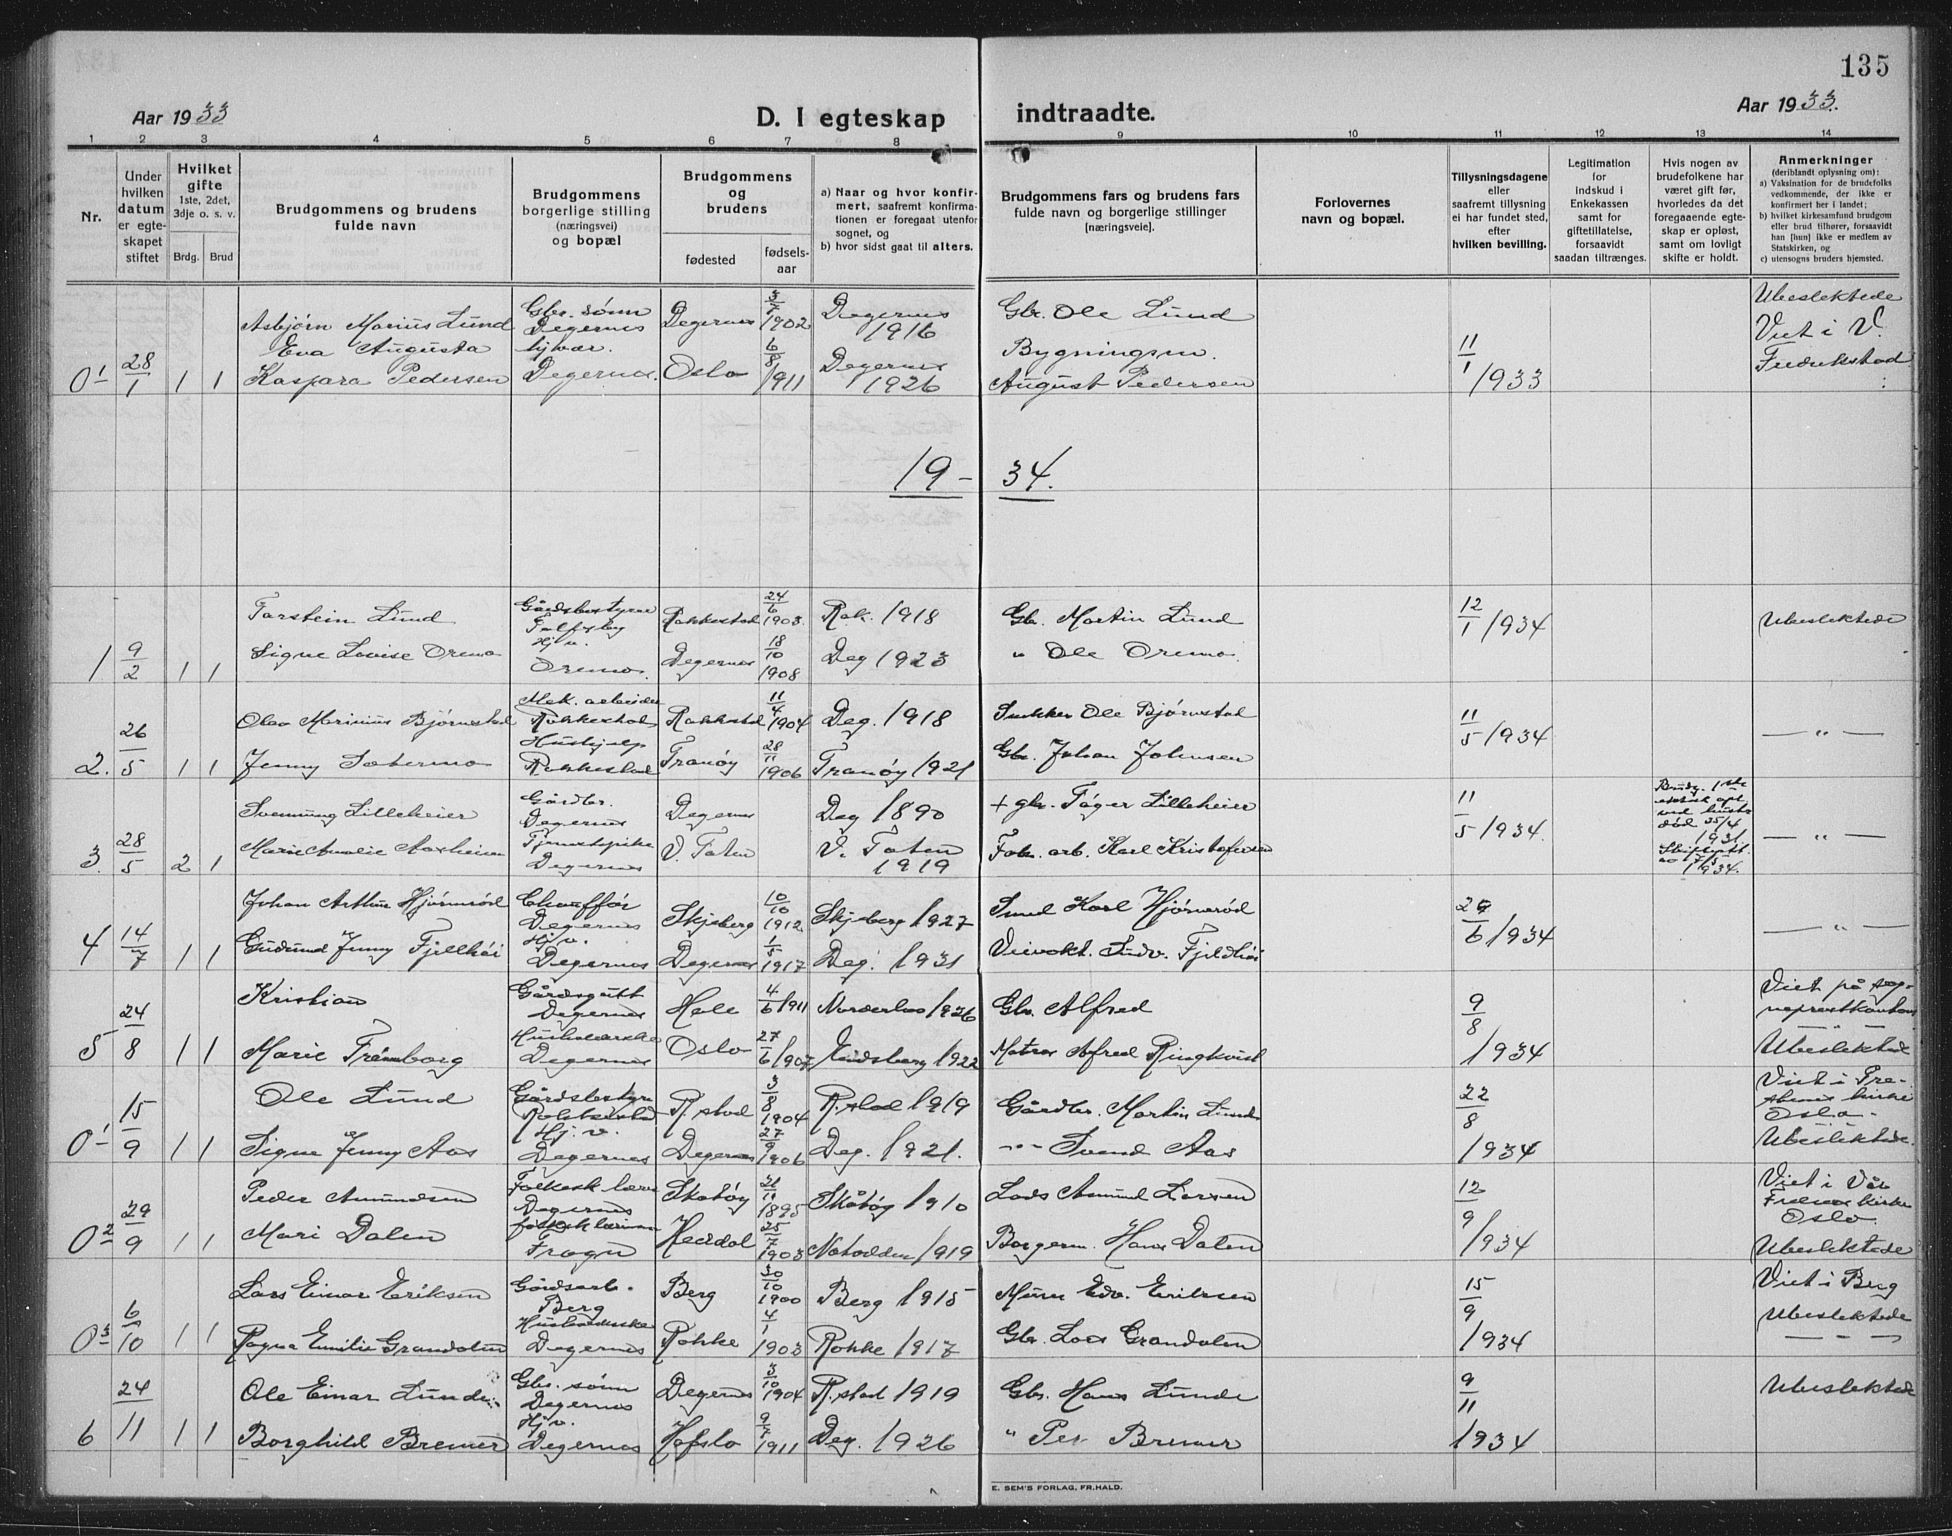 135
Aar 1933
D. I egteskap indtraadte.
Aar 1933.
1 2 3 4 5 6 7 8 9 10 11 12 13 14
Nr.
Under
hvilken
datum
er egte-
skapet
stiftet
Hvilket
gifte
1ste, 2det,
3dje o. s. v.
Brdg. Brud
Brudgommens og brudens
fulde navn
Brudgommens og brudens
borgerlige stilling
(næringsvei)
og bopæl
Brudgommens
og
brudens
fødested
fødsels-
aar
a) Naar og hvor konfir-
mert, saafremt konfirma-
tionen er foregaat utenfor
sognet, og
b) hvor sidst gaat til alters.
Brudgommens fars og brudens fars
fulde navn og borgerlige stillinger
(næringsveie).
Forlovernes
navn og bopæl.
Tillysningsdagene
eller
saafremt tillysning
ei har fundet sted,
efter
hvilken bevilling.
Legitimation
for
indskud i
Enkekassen
samt for
giftetillatelse,
forsaavidt
saadan tiltrænges.
Hvis nogen av
brudefolkene har
været gift før,
hvorledes da det
foregaaende egte-
skap er opløst,
samt om lovligt
skifte er holdt.
Anmerkninger
(deriblandt oplysning om):
a) Vaksination for de brudefolks
vedkommende, der ikke er
konfirmert her i landet;
b) hvilket kirkesamfund brudgom
eller brud tilhører, forsaavidt
han [hun] ikke er medlem av
Statskirken, og
c) utensogns bruders hjemsted.
0¹ 28/1 1 1
Asbjørn Marius Lund
Eva Augusta
Kaspara Pedersen
Gbr. sønn
Degernes
hj. vær.
Degernes.
Degernes 3/7 1902
Oslo 6/8 1911
Degernes
1916
Degernes
1926
Gbr. Ole Lund
Bygningsm.
August Pedersen
11/1 1933
Ubeslektede
Viet i V.
Fredrikstad
19 - 34.
1 9/2 1 1
Torstein Lund
Signe Lovise Oremo
Gårdsbestyrer
Hj v.
Oremo.
Rakkestad 24/6 1903.
Degernes 18/10 1908
Rak. 1918
Deg 1923
Gbr. Martin Lund
" Ole Oremo.
12/1 1934
Ubeslektede
2. 26/5 1 1
Olav Marinius Bjørnstad
Jenny Sætermo
Mek. arbeider
Rakkestad
Hushjelp
Rakkestad
Rakkestad 11/4 1904
Tranøy 28/11 1906
Deg. 1918
Tranøy 1921
Snekker Ole Bjørnstad
Gbr. Johan Johnsen
11/5 1934
— " —
3. 28/5 2 1
Svennung Lilleheier
Marie Amalie
Gårdbr.
Degernes
Tjenestepike
Degernes
Degernes
V. Toten
Deg 1890
V. Toten
1919
+ gbr. Tøger Lilleheier
Fabr. arb. Karl Kristofersen
11/5 1934.
Brudg. 1ste
ektesk. opl.
ved hustr.
død 25/4
1931.
1934.
— " —
4 14/7 1 1
Johan Arthur Hjørnerød
Gudrund Jenny Fjellhøi
Chauffør
Degernes
Hj v.
Degernes
Skjeberg 10/10 1912
Degernes 1/5 1917
Skjeberg 1927
Deg. 1931
Smed Karl Hjørnerød
Veivokt. Ludv. Fjeldhøi
29/6 1934
— " —
5 24/8 1 1
Kristian
Marie Trømborg
Gårdsgutt
Degernes
Husholderske
Degernes
Hele 4/6 1911
Oslo 27/6 1907
1926
Eidsberg 1922
Gbr. Alfred
Matros Alfred Ringkvist
9/8
1934
Viet på sog-
neprestkontor
Ubeslektede
0¹ 15/9 1 1
Ole Lund
Signe Jenny Aas
Gårdsbestyrer
Rakkestad
Hj. v.
Degernes
R.stad 3/8 1904
Degernes 27/9 1906
R.stad 1919
Deg. 1921.
Gårdbr. Martin Lund
-"- Svend Aas
22/8
1934
Viet i Tre-
kirke
Oslo -
Ubeslektede.
0² 29/9 1 1
Peder Amundsen
Mari Dalen
Folkesk. lærer
Degernes
folkesk lærerinne
Frogn
Skåtøy 21/11 1895
Heddal 25/7 1903
Skåtøy 1910
Notodden 1919
Lods Amund Larsen
Borgerm. Hans Dalen
12/9
1934
Viet i Vår
Frelsers kirke
Oslo.
Ubeslektede
0³ 6/10 1 1
Lars Einar Eriksen
Ragna Emilie Grandalen
Gårdsarb.
Berg
Husholderske
Degernes
Berg 30/10 1900
Rokke 4/1 1903
Berg 1915
Rokke 1917
Murer Edv. Eriksen
Gbr. Lars Grandalen
15/9
1934
Viet i Berg
Ubeslektede
— " —
6 24/11 1 1
Ole Einar Lunde
Borghild Bremer
Gbr. sønn
Degernes
Hj v.
Degernes
Degernes 3/10 1904
Hafslo 9/7 1911
R.stad 1919
Deg. 1926
Gbr. Hans Lunde
" Per Bremer
9/11
1934
Ubeslektede
E. SEM'S FORLAG, FR.HALD.